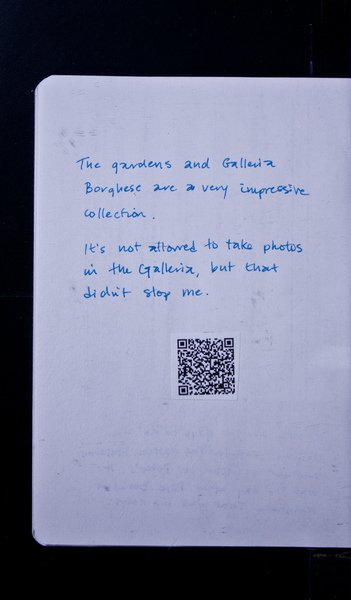 The gardens and Galleria
Borghese are a very impressive
collection.
It's not allowed to take photos
in the Galleria, but that
didn't stop me.